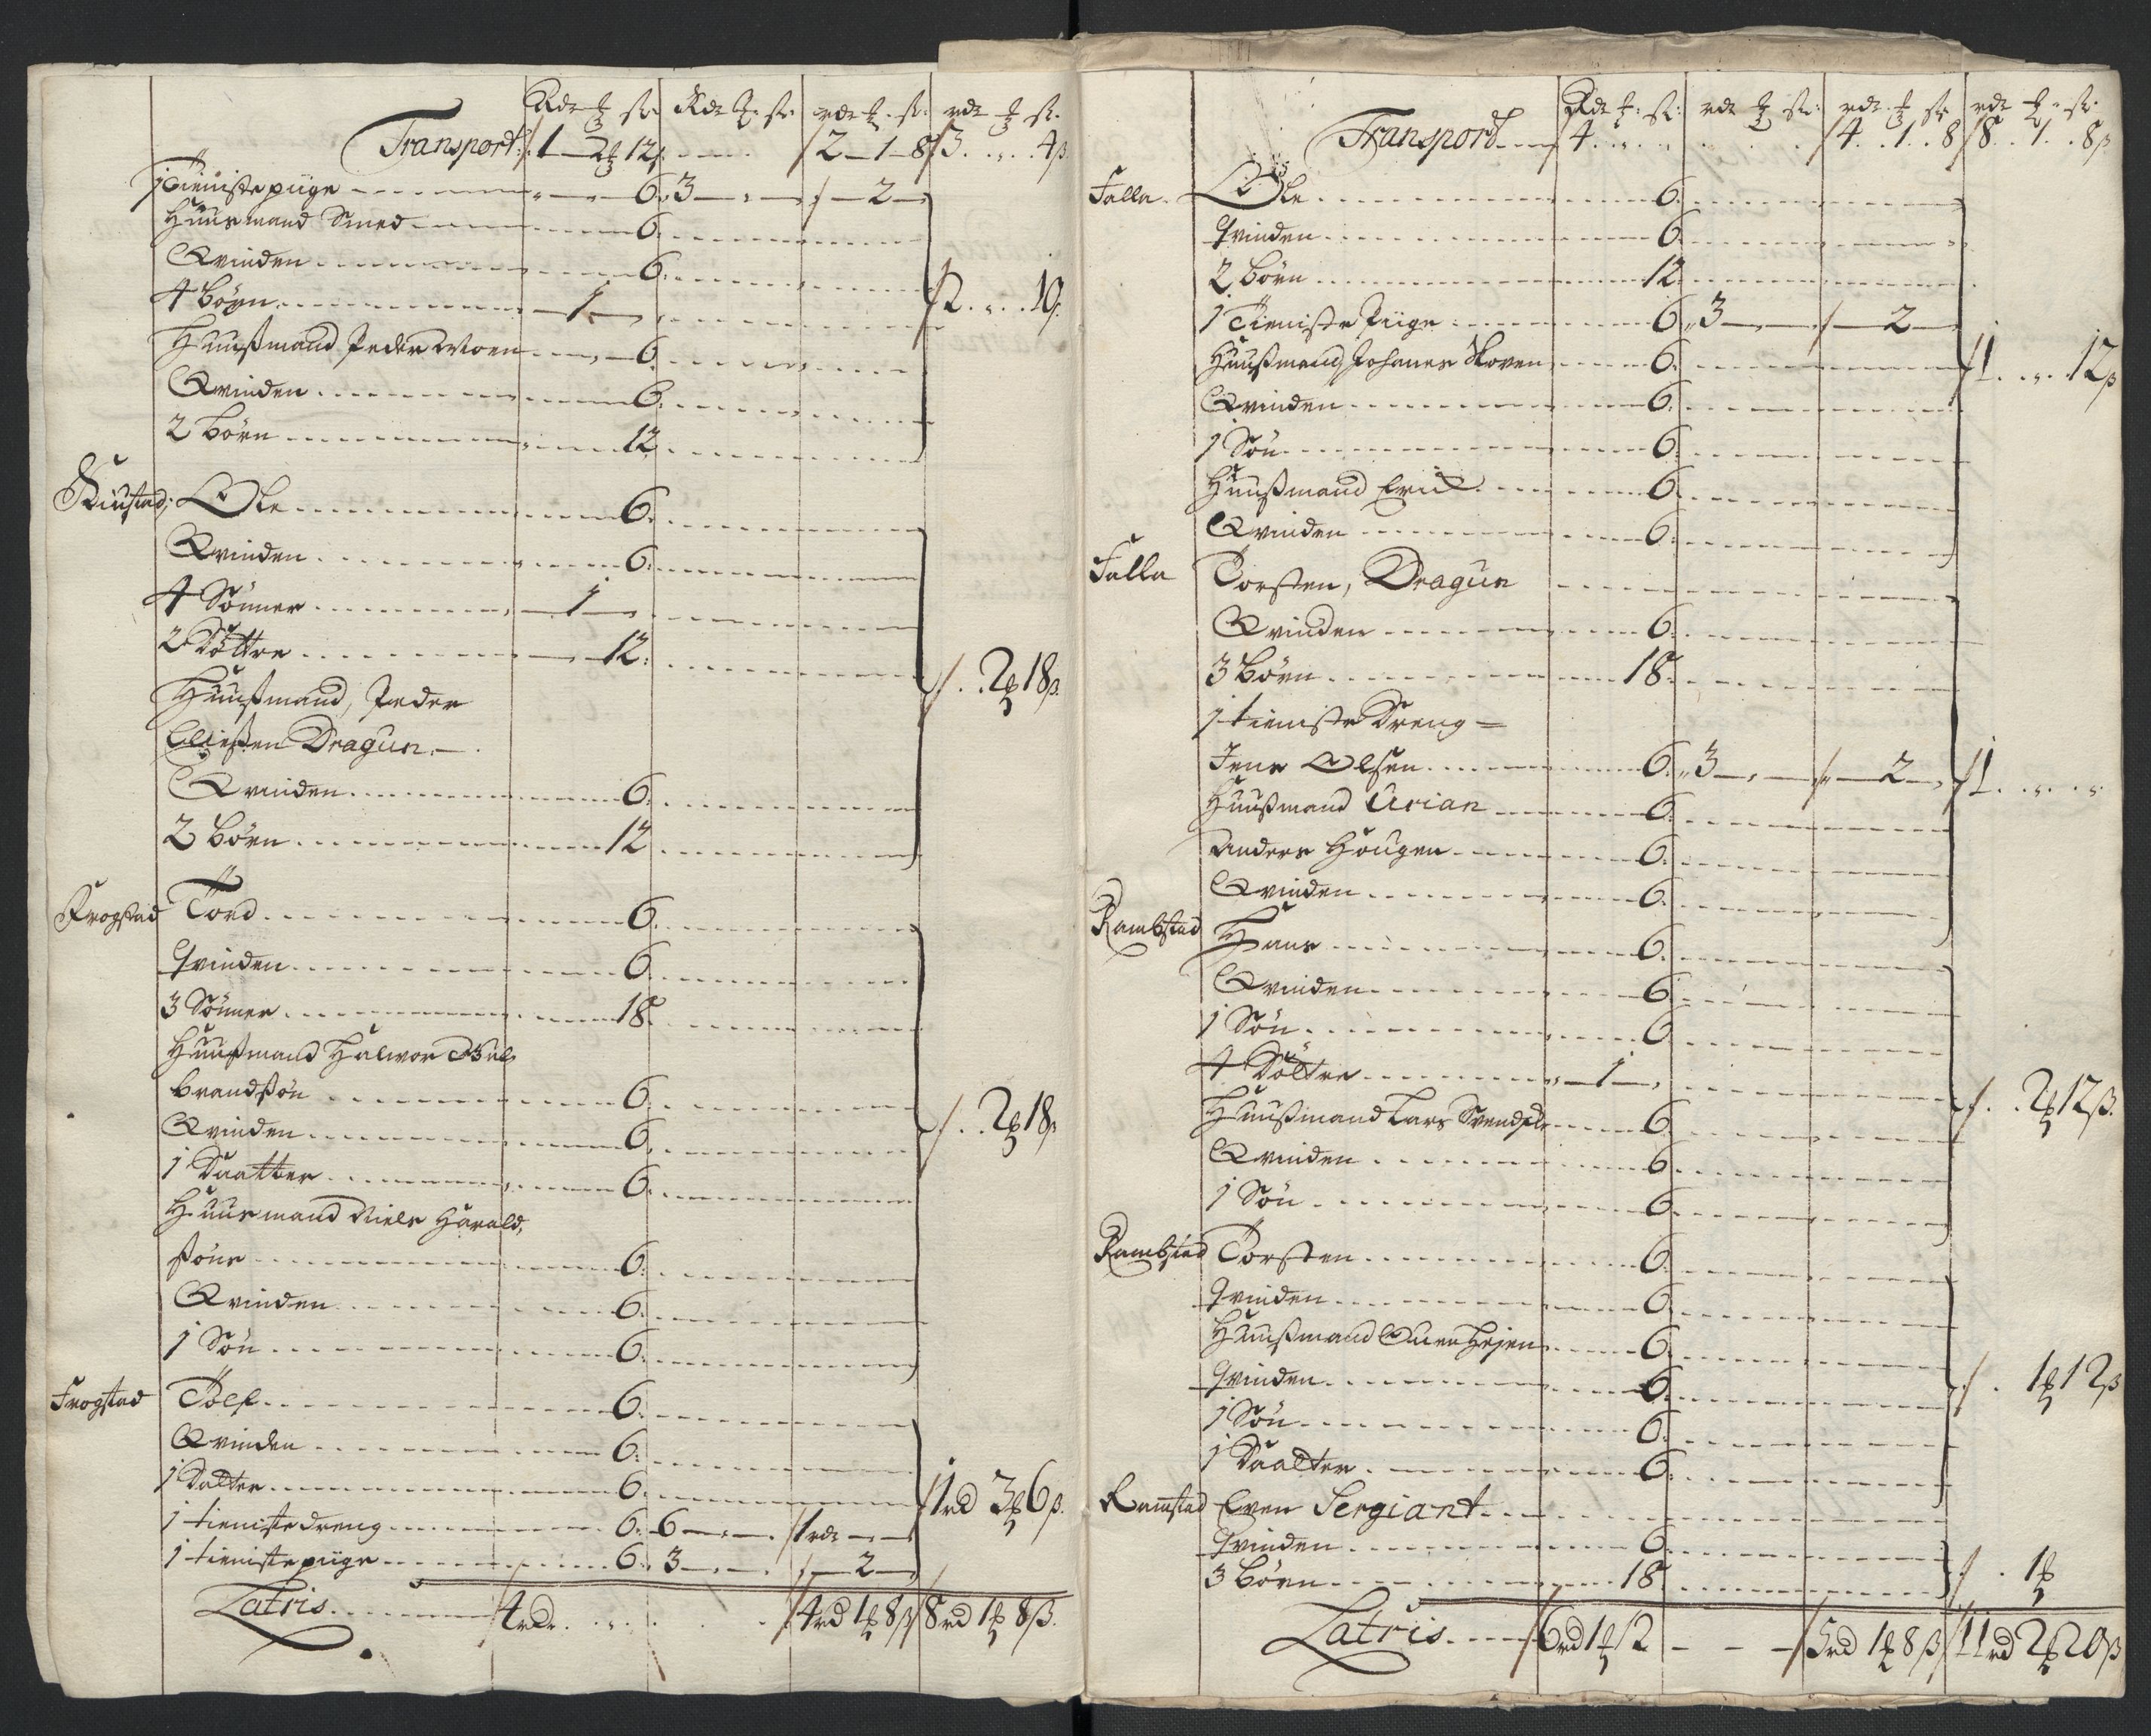 Rdr ꝑ ss Rdr ꝑ ss rdr ꝑ ss rdr ꝑ ss
Transport: 1 — 2 12 2 — 1 — 8 3 . . . 4ß
1 Tienistepiige 6 3 2
Huusmand Smed 6
Qvinden 6
4 börn 1 2 . . . 10
Huußmand Peder Moen 6
Qvinden 6
2 börn 12
Kiustad, Ole 6
Qvinden 6
4 Sönner 1
2 Döttre 12 2 18ß
Huußmand, Peder
Dragun
Qvinden 6
2 Börn 12
Frogstad Tord 6
Qvinden 6
3 Sönner 18
Huußmand Halvor Gul
brandßön 6 2 18ß
Qvinden 6
1 Daatter 6
Huusmand Niels Harald,
ßöns 6
Qvinden 6
1 Sön 6
Frogstad Tolf 6
Qvinden 6
1 Datter 6 1rd 3 6ß
1 tienistedreng 6 6 1rdr
1 tienistepiige 6 3 2
Latris 4rdr 4rd 1 8ß 8rd 1 8ß
Rdr ꝑ ss rdr ꝑ ss rdr ꝑ ss rdr ꝑ ss
Transport 4 4 . 1 . 8 8 . 1 . 8ß
Falla Ole 6
Qvinden 6
2 börn 12
1 Tieniste Piige 6 3 2
Huußmand Johanes Skoven 6 1 . . . 12ß
Qvinden 6
1 Sön 6
Huußmand Erick 6
Qvinden 6
Falla Torsten, Dragun
Qvinden 6
3 Börn 18
1 tieniste Dreng =
Jens Olsen 6 3 2 1
Huußmand Urian 6
Anders Hougen 6
Qvinden 6
Rambstad Hans 6
Qvinden 6
1 Sön 6
4 Döttre 1 2 12ß
Huußmand Lars Svends 6
Qvinden 6
1 Sön 6
Rambstad Torsten 6
Qvinden 6
Huußmand 6
Qvinden 6 1 12ß
1 Sön 6
1 Daatter 6
Ramstad Even Sergiant
Qvinden 6
3 Börn 18 1
Latris 6rd 1 12 5rd 1 8ß 11rd 2 20ß